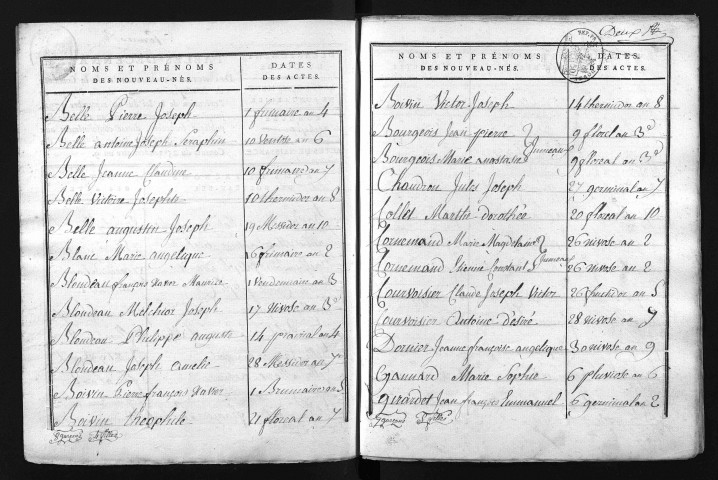 NOMS ET PRÉNOMS DATES
DES NOUVEAU-NÉS. DES ACTES.
Belle Pierre Joseph 1 frimaire an 4
Belle antoine Joseph Seraphin 10 ventose an 6
Belle Jeanne Claudine 10 frimaire an 7
Belle Victoire Josephte 10 thermidor an 8
Belle augustin Joseph 19 Messidor an 10
Blanc Marie angelique 16 frimaire an 2
Blondeau françois Xavier Maurice 1 Vendemiaire an 3
Blondeau Melchior Joseph 17 nivose an 3e
Blondeau Philippe auguste 14 prairial an 4
Blondeau Joseph Amelie 28 Messidor an 7
Boivin Pierre françois Xavier 1 Brumaire an 5
Boivin theophile 21 floreal an 7
Deux
NOMS ET PRÉNOMS DATES
DES NOUVEAU-NÉS. DES ACTES.
Boivin Victor Joseph 14 thermidor an 8
Bourgeois Jean pierre 9 florel an 3e
Jumeaux
Bourgeois Marie anastasie 9 floreal an 3e
Chaudron Jules Joseph 27 germinal an 7
Collet Marthe dorothée 20 floreal an 10
Cornemand Marie Magdelaine 26 nivose an 2
Jumeau
Cornemand Etienne Constant 26 nivose an 2
Courvoisier Claude Joseph Victor 26 fructidor an 5
Courvoisier Antoine désiré 28 nivose an 7
Dornier Jeanne françoise angelique 30 nivose an 9
Gannard Marie Sophie 6 pluviose an 6
Girardot Jean françois Emmanuel 6 germinal an 2